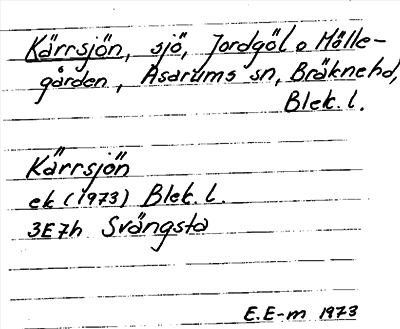 Kärrsjön, sjö, Jordgöl o Mölle-
gården, Asarums sn, Bräknehd,
Blek. l.
Kärrsjön
ek (1973) Blek. l.
3E7h Svängsta
E.E-m 1973